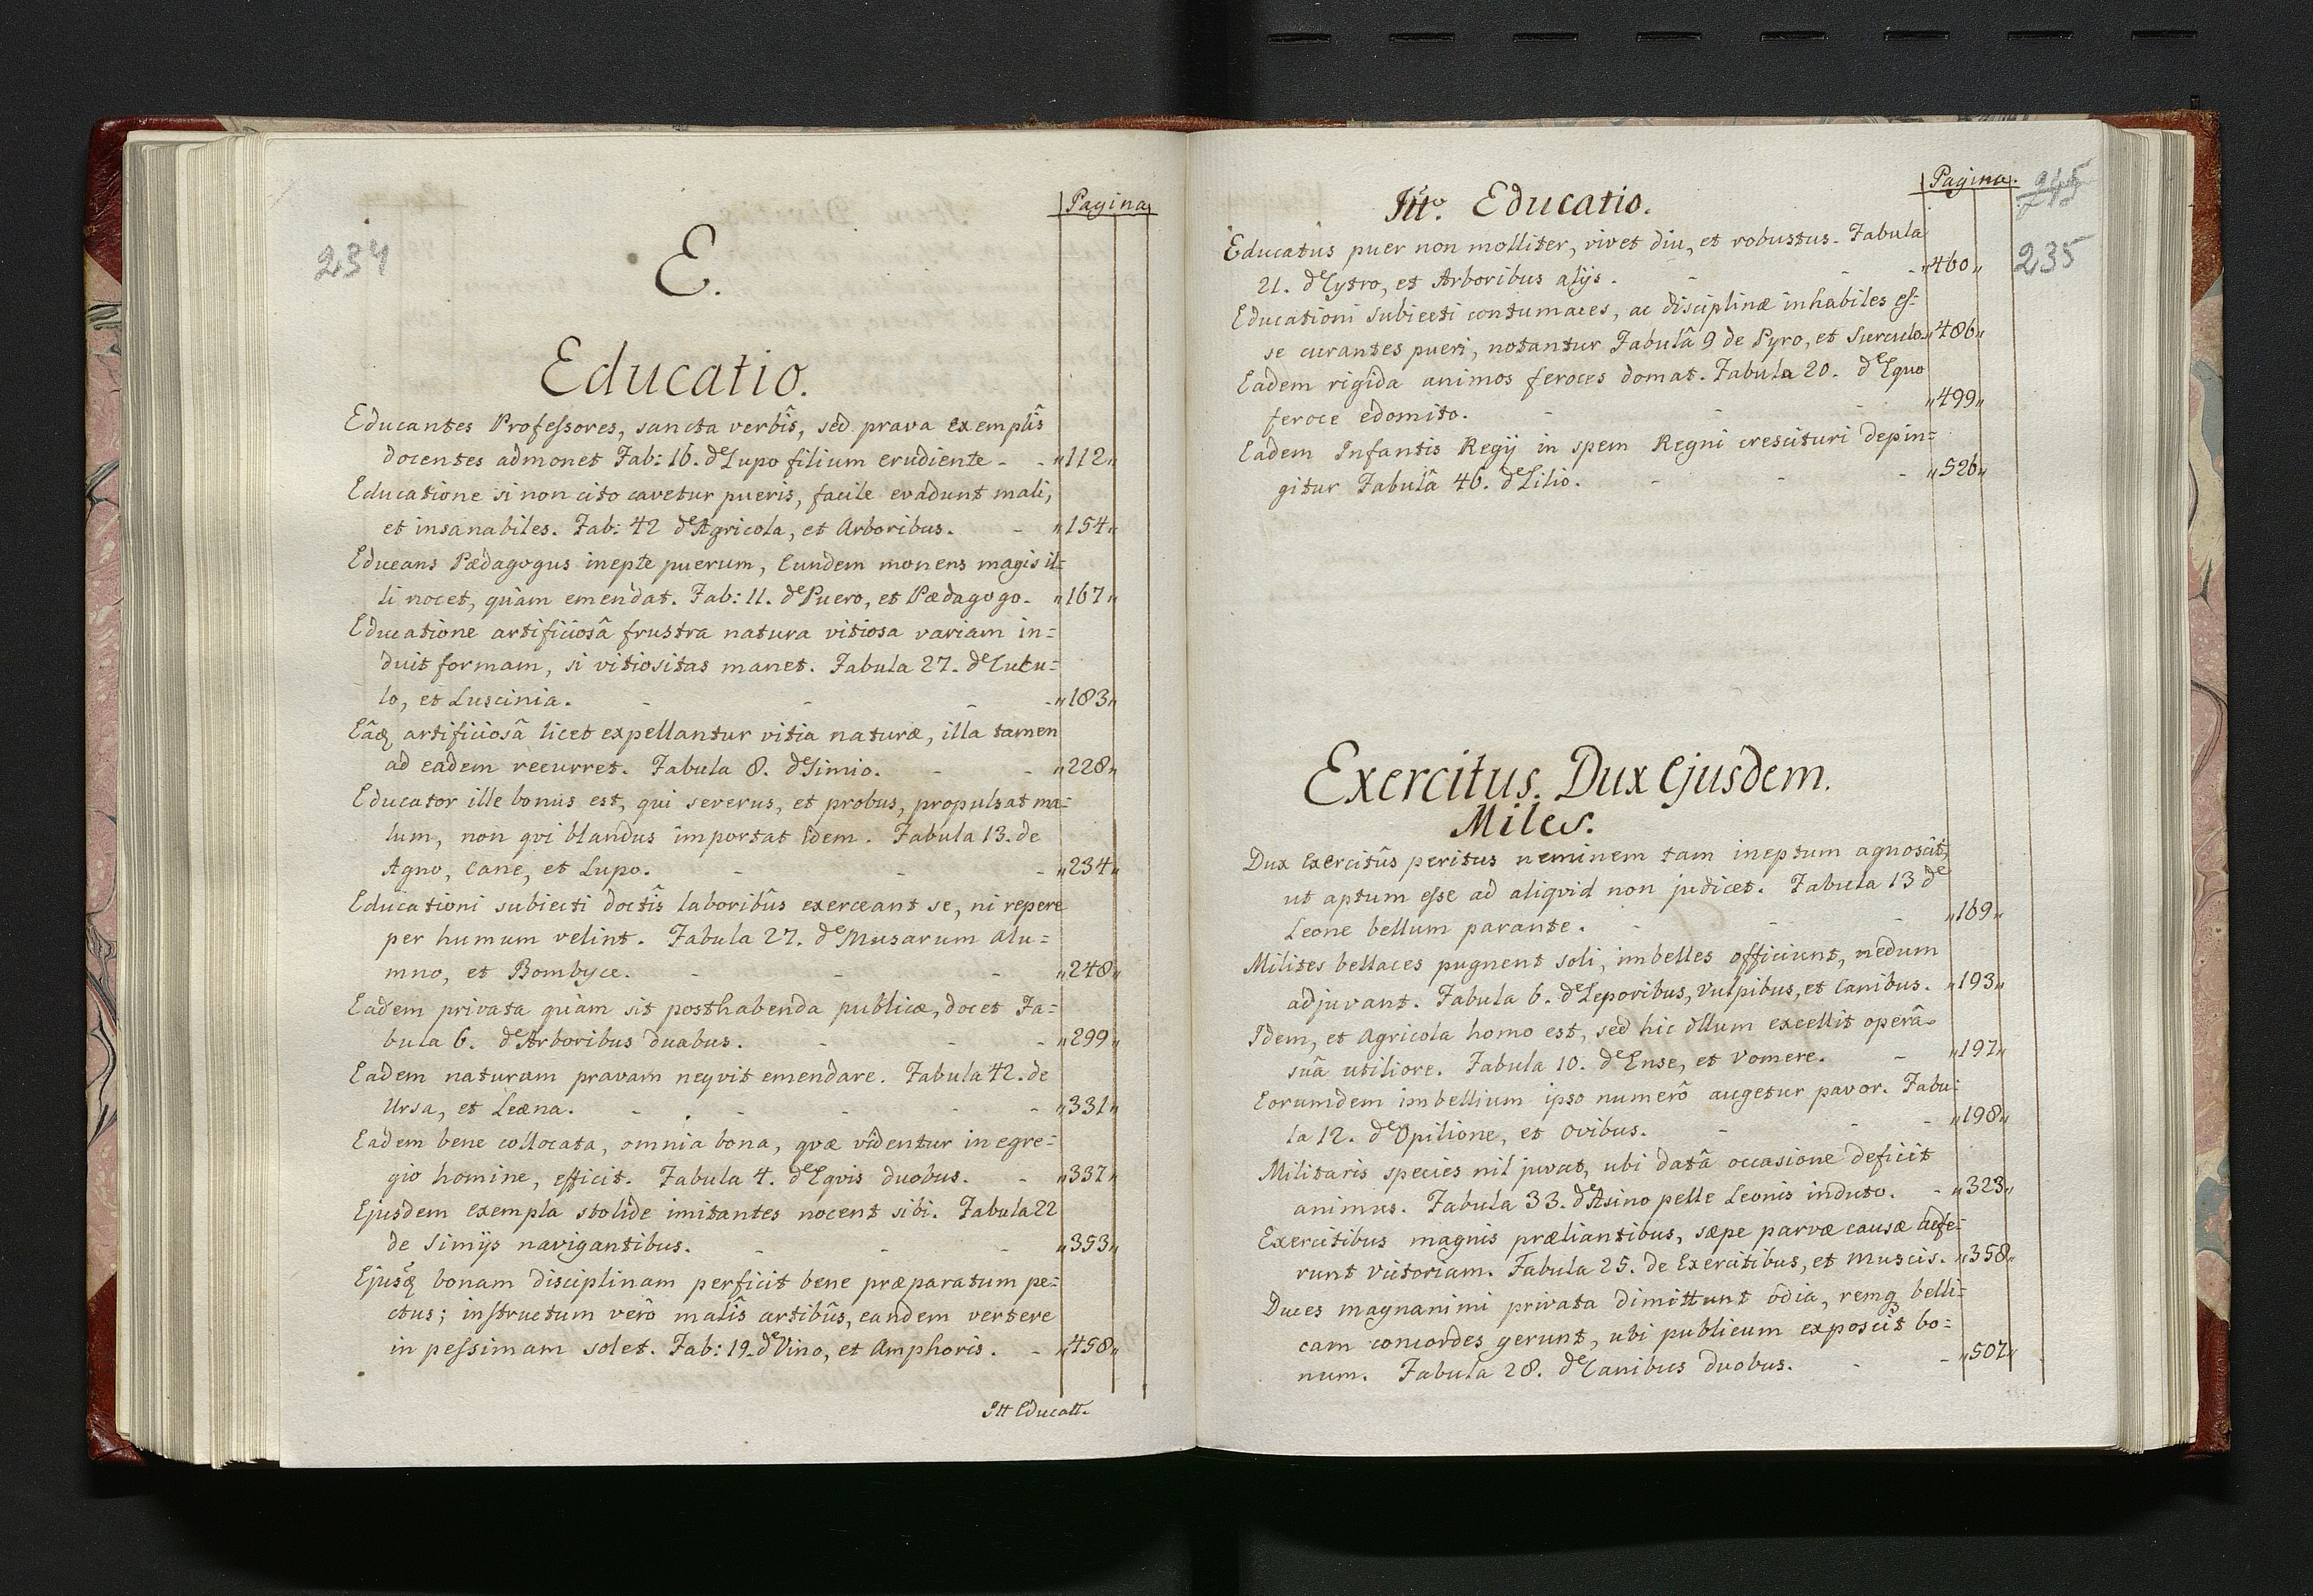 Pagina
234
E.
Educatio.
Educantes Professores, sancta verbîs, sed prava exemplîs
docentes admonet Fab: 16. de Lupo filium erudiente - - „112„
Educatione si non cito cavetur pueris, facile evadunt mali,
et insanabiles. Fab: 42 de Agricola, et Arboribus. - „154„
Educans Pædagogus inepte puerum, Eundem monens magis il=
li nocet, quàm emendat. Fab: 11. de Puero, et Pædagogo. „167„
Educatione artificiosâ frustra natura vitiosa variam in=
duit formam, si vitiositas manet. Fabula 27. de Cucu=
lo, et Luscinia. - - - - „183„
Eâq artificiosâ licet expellantur vitia naturæ, illa tamen
ad eadem recurret. Fabula 8. de Simio. - - „228„
Educator ille bonus est, qui severus, et probus, propulsat ma=
lum, non qvi blandus importat idem. Fabula 13. de
Agno, Cane, et Lupo. - - - „234„
Educationi subiecti doctîs laboribûs exerceant se, ni repere
per humum velint. Fabula 27. de Musarum Alu=
mno, et Bombyce. - - - „248„
Eadem privata quàm sit posthabenda publicæ, docet Fa=
bula 6. de Arboribus duabus. - - - „299„
Eadem naturam pravam neqvit emendare. Fabula 42. de
Ursa, et Leæna. - - - - - „331„
Eadem bene collocata, omnia bona, qvæ videntur in egre=
gio homine, efficit. Fabula 4. de Eqvis duobus. - „337„
Ejusdem exempla stolide imitantes nocent sibi. Fabula 22
de Simijs navigantibus. - - - „353„
Ejusq bonam disciplinam perficit bene præparatum pe=
ctus; instructum verò malîs artibûs, eandem vertere
in pessimam solet. Fab: 19. de Vino, et Amphoris. - „458„
Itt Educatt.
Pagina.
245
235
Itto. Educatio.
Educatus puer non molliter, vivet diu, et robustus. Fabula
21. de Cytro, et Arboribus alijs. - - - „460„
Educationi subiecti contumaces, ac disciplinæ inhabiles es=
se curantes pueri, notantur Fabulâ 9 de Pyro, et Surculo. „486„
Eadem rigida animos feroces domat. Fabula 20. de Equo
feroce edomito. - - - „499„
Eadem Infantis Regij in spem Regni crescituri depin=
gitur Fabulâ 46. de Lilio. - - - „526„
Exercitus. Dux Ejusdem.
Miles.
Dux Exercitûs peritus neminem tam ineptum agnoscit,
ut aptum esse ad aliqvid non judicet. Fabula 13 de
Leone bellum parante. - - - „169„
Milites bellaces pugnent soli, imbelles officiunt, nedum
adjuvant. Fabula 6. de Leporibus, Vulpibus, et Canibus. „193„
Idem, et Agricola homo est, sed hic illum excellit operâ
suâ utiliore. Fabula 10. de Ense, et Vomere. - „197„
Eorumdem imbellium ipso numerô augetur pavor. Fabu=
la 12. de Opilione, et Ovibus. - - - „198„
Militaris species nil juvat, ubi datâ occasione deficit
animus. Fabula 33. de Asino pelle Leonis induto. - „323„
Exercitibus magnis præliantibus, sæpe parvæ causæ aufe=
runt victoriam. Fabula 25. de Exercitibus, et Muscis. „358„
Duces magnanimi privata dimittunt odia, remq belli=
cam concordes gerunt, ubi publicum exposcit bo=
num. Fabula 28. de Canibus duobus. - - „507„